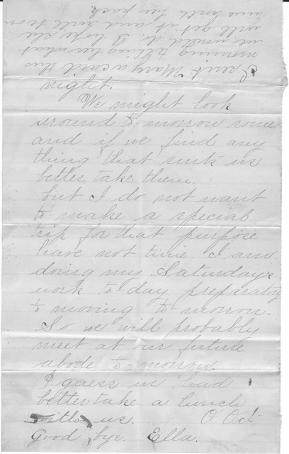 I sent Mary a card this
morning telling her what
we would do. I hope she
will get it, and will
night.
We might look
around tomorrow some
and if we find any
thing that suits us
better take them.
but I do not want
to make a special
trip for that purpose
have not time. I am
doing my Saturdays
work to day preparatory
to moving to morrow.
So we will probably
meet at our future
abode to-morrow.
I guess we had
better take a lunch
with us.
Good bye. Ella.